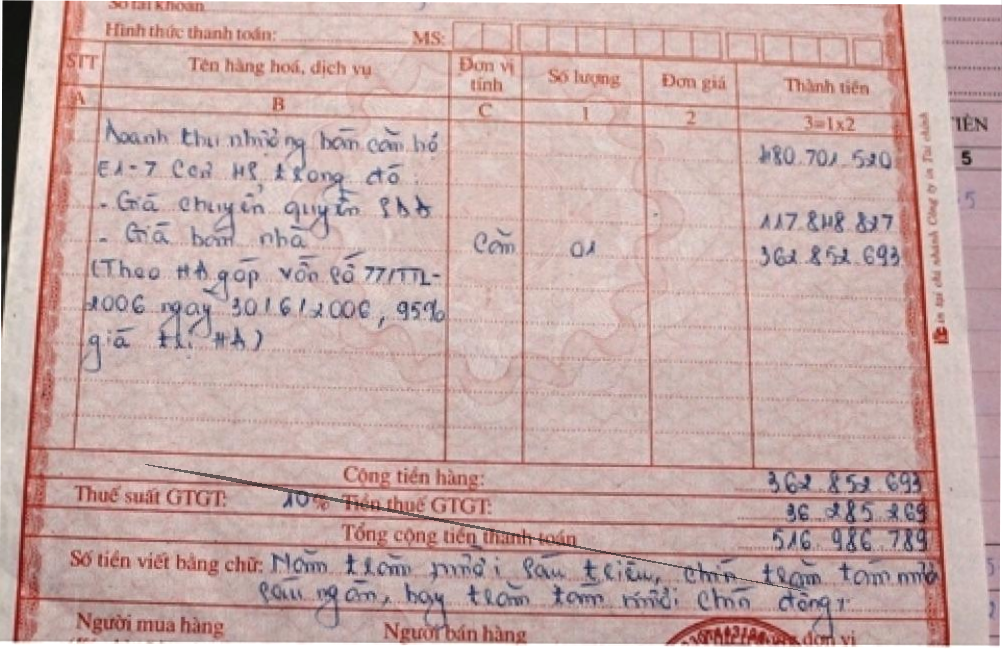 Số tài khoản
Hình thức thanh toán: MS:
STT Tên hàng hoá, dịch vụ Đơn vị tính Số lượng Đơn giá Thành tiền
A B C 1 2 3=1x2
Doanh thu nhượng bán căn hộ 480.701.520
E1-7 trong đó:
- Giá chuyển quyền SDĐ 117.848.827
- Giá bán nhà Căn 01 362.852.693
(Theo HĐ góp vốn số 77/TTL-
2006 ngày 30/6/2006, 95%
giá trị HĐ)
Cộng tiền hàng: 362.852.693
Thuế suất GTGT: 10% Tiền thuế GTGT: 36.285.269
Tổng cộng tiền thanh toán 516.986.789
Số tiền viết bằng chữ: Năm trăm mười sáu triệu, chín trăm tám mươi
sáu ngàn, bảy trăm tám mươi chín đồng
Người mua hàng Người bán hàng đơn vị
In tại chi nhánh Công ty in Tài chính
TIỀN
5